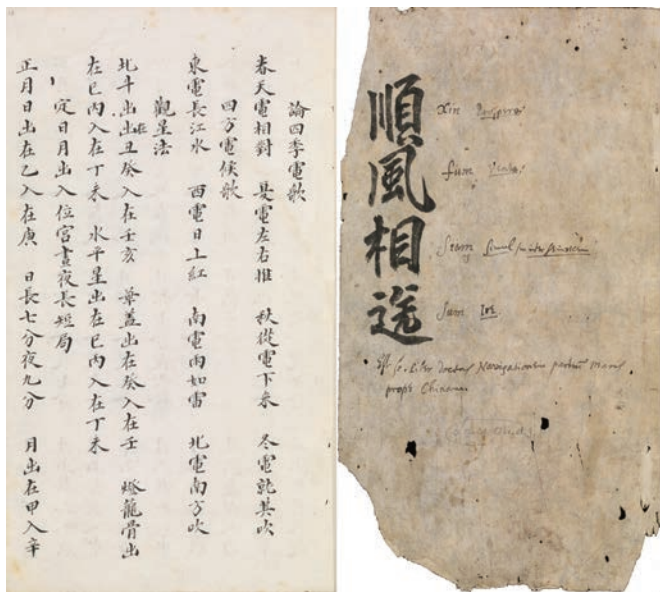 論四季電歌
春天電相對 夏電左右推 秋從電下來 冬電就其吹
四方電候歌
東電長江水 西電日上紅 南電雨如雷 北電南方吹
觀星法
北斗出出在丑癸入在壬亥 華蓋出在癸入在壬 燈籠骨出
在巳丙入在丁未 水平星出在巳丙入在丁未
定日月出入位宮晝夜長短局
正月日出在乙入在庚 日長七分夜九分 月出在甲入辛
順風相送
Xin
fum
Siam simul
sum
liber Navigationem partium maris
prope